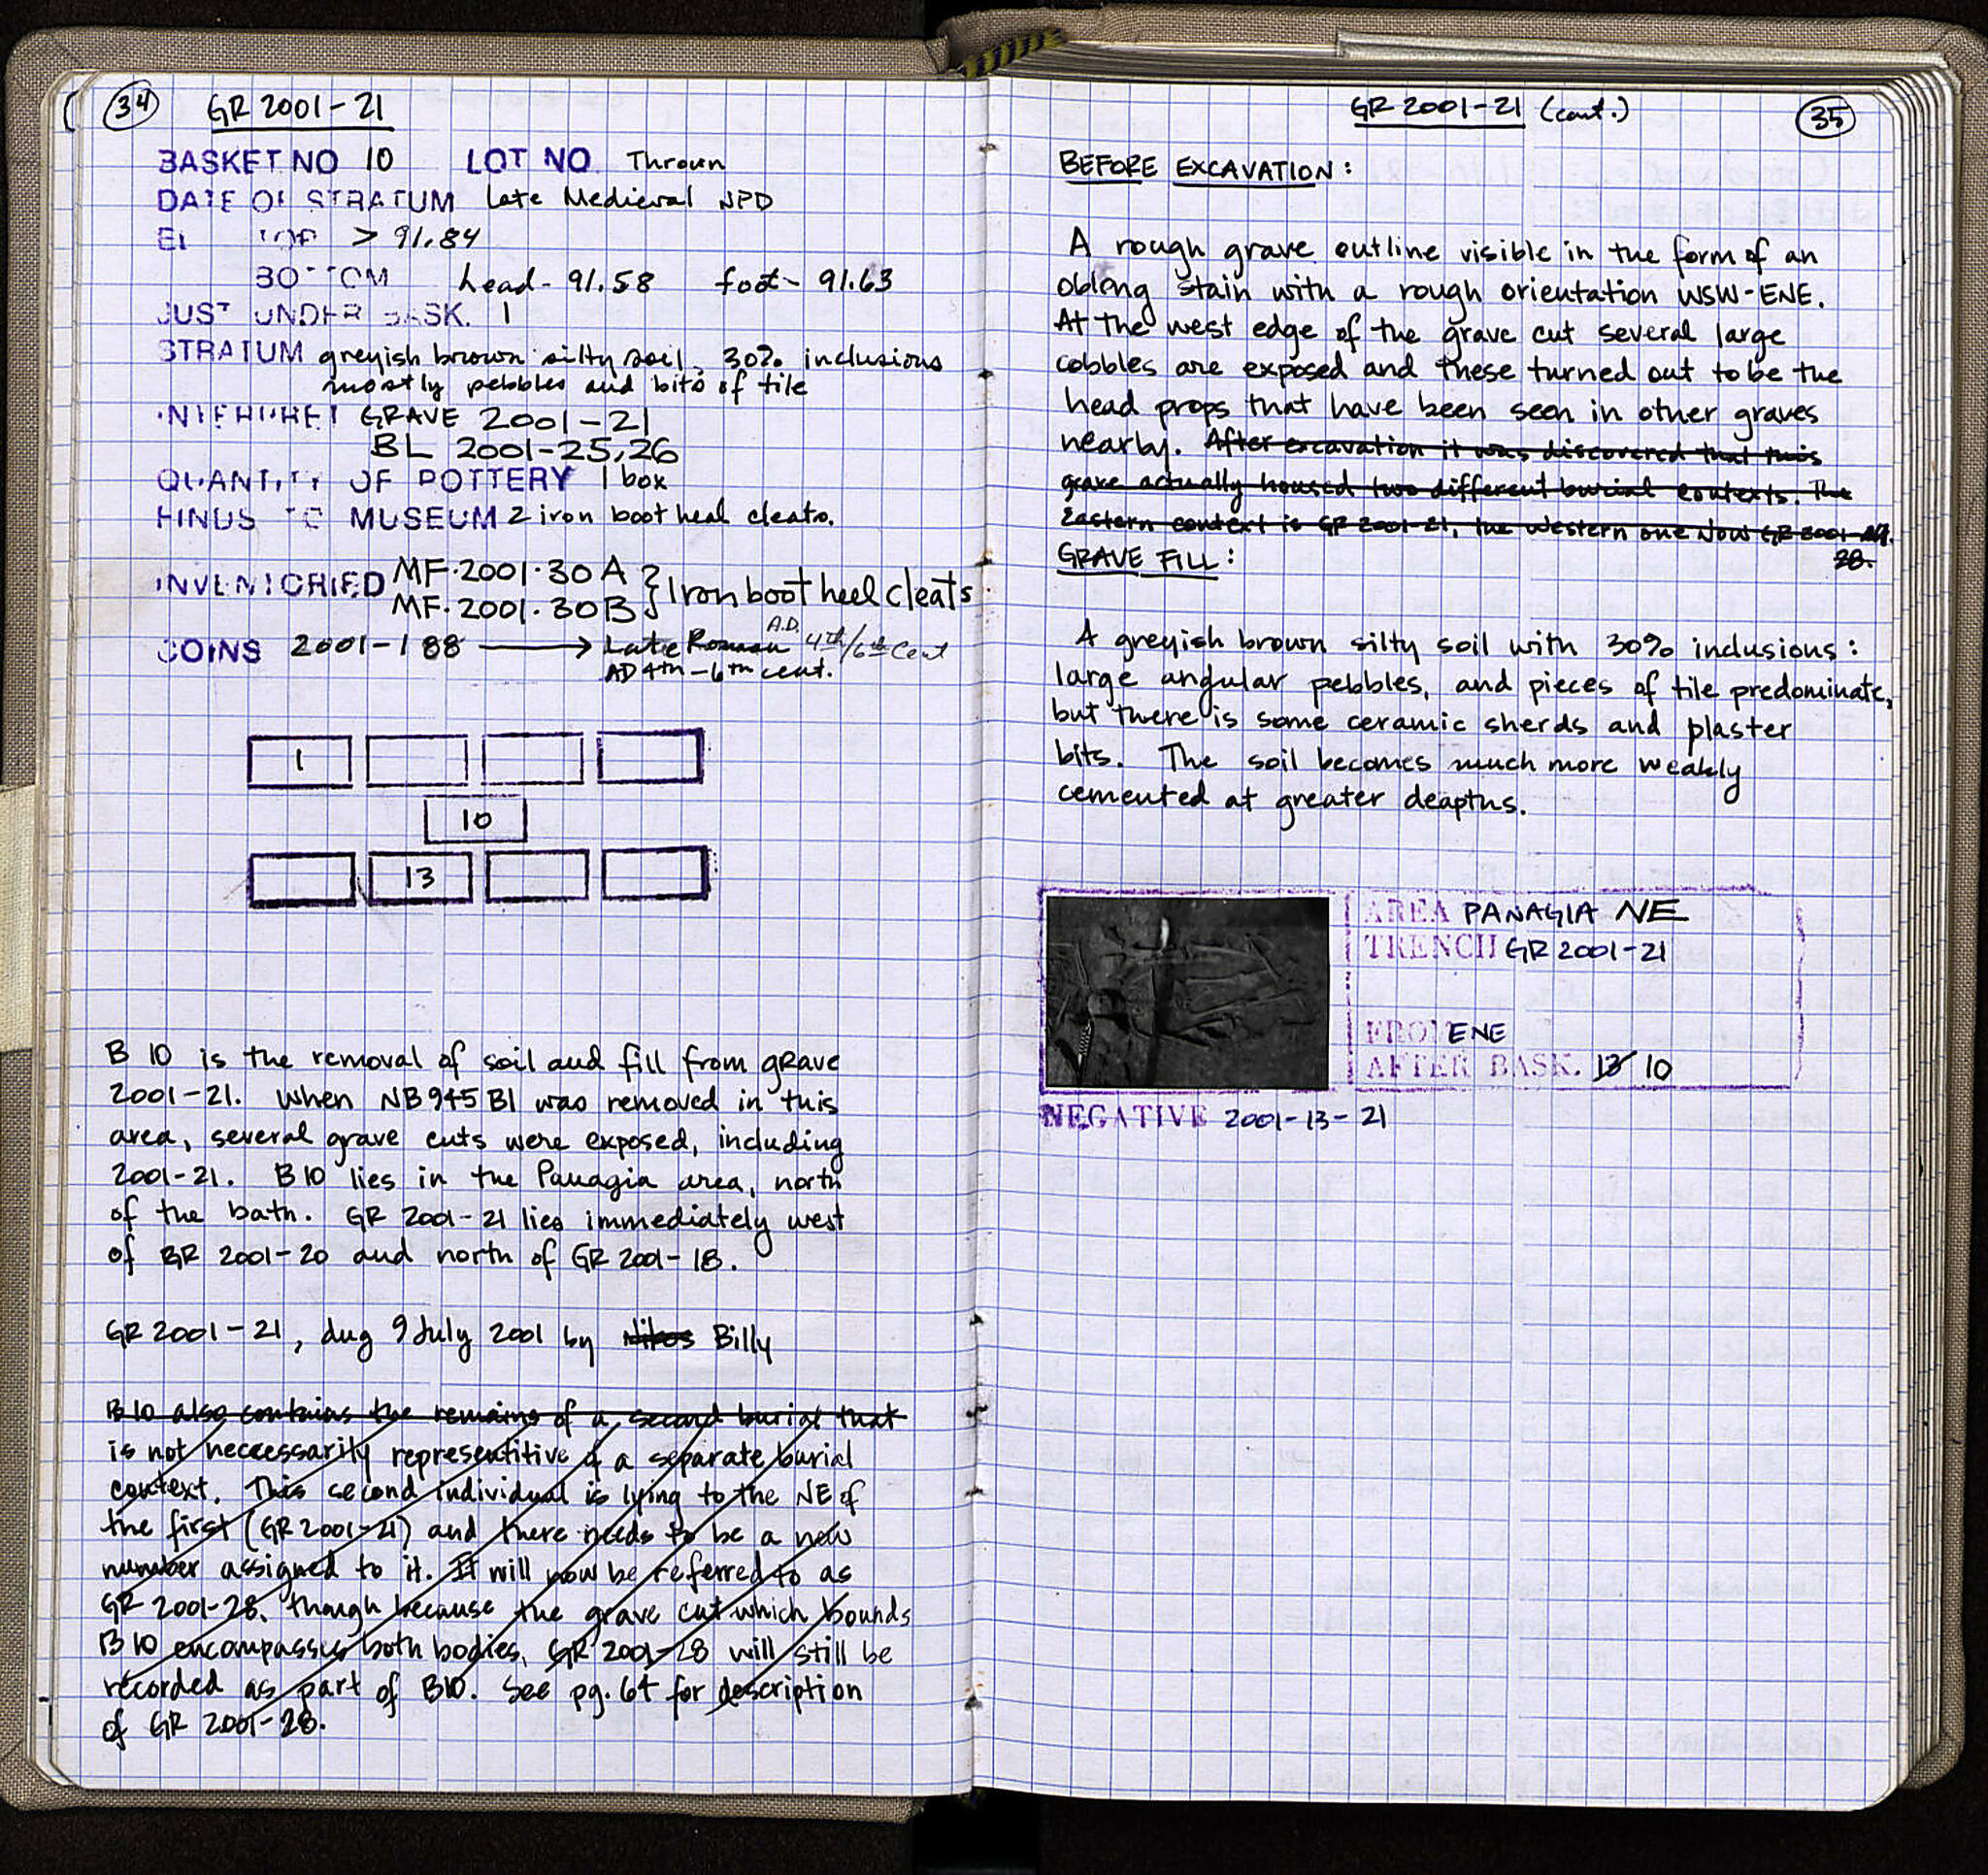 34 GR 2001-21
BASKET NO 10 LOT NO. Thrown
DATE OF STRATUM Late Medieval NPD
EL TOP > 91.84
BOTTOM head - 91.58 foot - 91.63
JUST UNDER BASK. 1
STRATUM greyish brown silty soil, 30% inclusions
mostly pebbles and bits of tile
INTERPRET GRAVE 2001-21
BL 2001-25,26
QUANTITY OF POTTERY 1 box
FINDS TO MUSEUM 2 iron boot heal cleats.
INVENTORIED MF.2001.30A } Iron boot heel cleats
MF.2001.30B
COINS 2001-188 → Late Roman A.D. 4th/6th Cent
AD 4th-6th cent.
1
10
13
B 10 is the removal of soil and fill from grave
2001-21. When NB945 B1 was removed in this
area, several grave cuts were exposed, including
2001-21. B10 lies in the Panagia area, north
of the bath. GR 2001-21 lies immediately west
of GR 2001-20 and north of GR 2001-18.
GR 2001-21, dug 9 July 2001 by Nikos Billy
B10 also contains the remains of a second burial that
is not neccessarity representitive of a separate burial
context. This second individual is lying to the NE of
the first (GR 2001-21) and there needs to be a new
number assigned to it. It will now be referred to as
GR 2001-28, though because the grave cut which bounds
B10 encompasses both bodies, GR 2001-28 will still be
recorded as part of B10. See pg. 64 for description
of GR 2001-28.
GR 2001-21 (cont.) 35
BEFORE EXCAVATION:
A rough grave outline visible in the form of an
oblong stain with a rough orientation WSW-ENE.
At the west edge of the grave cut several large
cobbles are exposed and these turned out to be the
head props that have been seen in other graves
nearby. After excavation it was discovered that this
grave actually housed two different burial contexts. The
Eastern context is GR 2001-21, the western one now GR 2001-
28.
GRAVE FILL:
A greyish brown silty soil with 30% inclusions:
large angular pebbles, and pieces of tile predominate,
but there is some ceramic sherds and plaster
bits. The soil becomes much more weakly
cemented at greater deapths.
AREA PANAGIA NE
TRENCH GR 2001-21
FROM ENE
AFTER BASK. 13 10
NEGATIVE 2001-13-21